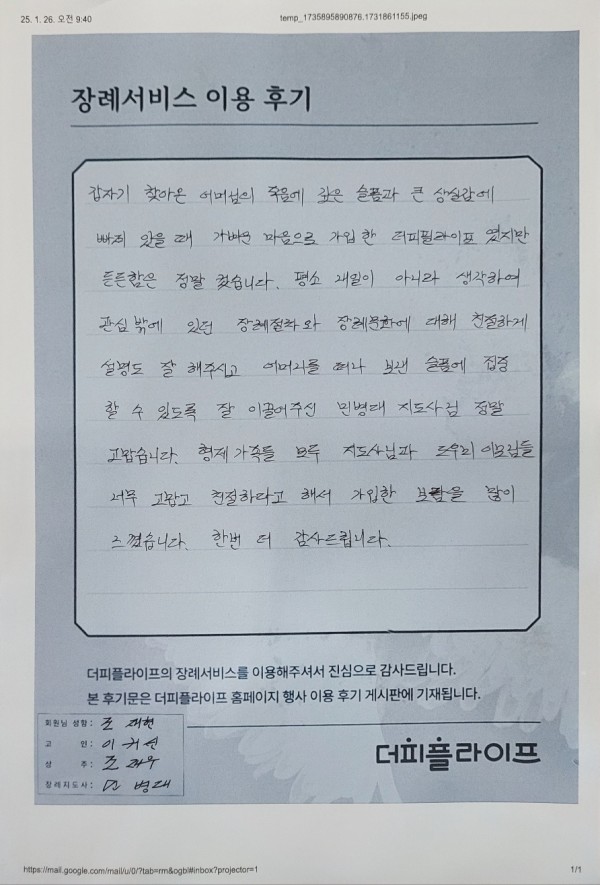 25. 1. 26. 오전 9:40
temp_1735895890876.1731861155.jpeg
장례서비스 이용 후기
갑자기 찾아온 어머님의 죽음에 깊은 슬픔과 큰 상실감에
빠져 있을 때 가벼운 마음으로 가입한 더피플라이프 였지만
든든함은 정말 컸습니다. 평소 내일이 아니라 생각하여
관심 밖에 있던 장례절차와 장례문화에 대해 친절하게
설명도 잘 해주시고 어머니를 떠나 보낸 슬픔에 집중
할 수 있도록 잘 이끌어주신 민병대 지도사님 정말
고맙습니다. 형제 가족들 모두 지도사님과 도우미 이모님들
너무 고맙고 친절하다고 해서 가입한 보람을 많이
느꼈습니다. 한번 더 감사드립니다.
더피플라이프의 장례서비스를 이용해주셔서 진심으로 감사드립니다.
본 후기문은 더피플라이프 홈페이지 행사 이용 후기 게시판에 기재됩니다.
회원님 성함: 조
고 인: 이
상 주: 조
장례지도사: 민 병대
더피플라이프
https://mail.google.com/mail/u/0/?tab=rm&ogbl#inbox?projector=1
1/1